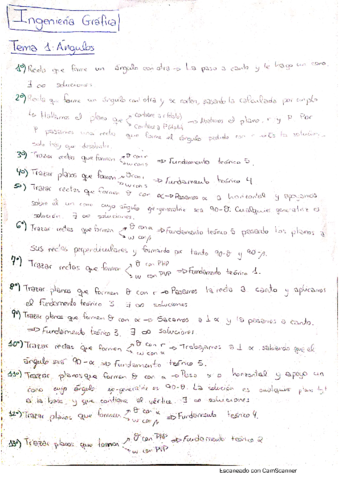 Ingeniería Gráfica
Tema 1: Ángulos
1º) Recta que forme un ángulo con otra → La paso a canto y le hago un cono.
∃ ∞ soluciones
2º) Recta que forme un ángulo con otra y se corten, pasando la calculada por un pto
P Hallamos el plano que contiene a la recta / contiene al punto ⇒ Abatimos el plano, r y P. Por
P pasamos una recta que forme el ángulo pedido con r es la solución,
solo hay que desabatir.
3º) Trazar rectas que formen θ con r / ω con s ⇒ Fundamento teórico 5.
4º) Trazar planos que formen θ con r / ω con s ⇒ Fundamento teórico 4
5º) Trazar rectas que formen θ con α ⇒ Pasamos α a horizontal y apoyamos
sobre él un cono cuyo ángulo de generatriz sea 90-θ. Cualquier generatriz es
solución. ∃ ∞ soluciones.
6º) Trazar rectas que formen θ con α / ω con β ⇒ Fundamento teórico 5 pasando los planos a
sus rectas perpendiculares y formando por tanto 90-θ y 90-ω.
7º) Trazar rectas que formen θ con PHP / ω con PVP ⇒ Fundamento teórico 1.
8º) Trazar planos que formen θ con r ⇒ Pasamos la recta a canto y aplicamos
el Fundamento teórico 3. ∃ ∞ soluciones
9º) Trazar planos que formen θ con α ⇒ Sacamos a ⊥ α y la pasamos a canto.
⇒ Fundamento teórico 3. ∃ ∞ soluciones
10º) Trazar rectas que formen θ con r / ω con α ⇒ Trabajamos a ⊥ α, sabiendo que el
ángulo será 90-α ⇒ Fundamento teórico 5.
11º) Trazar planos que formen θ con α ⇒ Paso α a horizontal y apoyo un
cono cuyo ángulo generatriz es 90-θ. La solución es cualquier plano tg
a la base, y que contiene al vértice. ∃ ∞ soluciones
12º) Trazar planos que formen θ con α / ω con r ⇒ Fundamento teórico 4.
13º) Trazar planos que formen θ con PHP / ω con PVP ⇒ Fundamento teórico 2
Escaneado con CamScanner